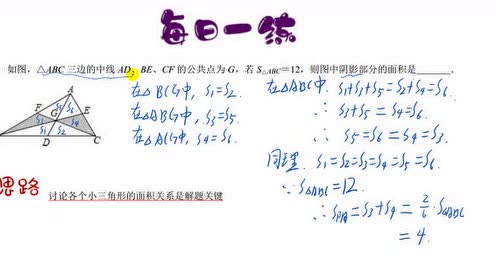 每日一练
如图，△ABC 三边的中线 AD、BE、CF 的公共点为 G，若 S△ABC=12，则图中阴影部分的面积是______．
A
F
G
E
B
D
C
在△BCG中, S₁=S₂.
在△ABG中, S₃=S₅
在△ACG中, S₄=S₆.
在△ABC中. S₁+S₃+S₅=S₂+S₄+S₆.
∴ S₃+S₅=S₄+S₆.
∴ S₅=S₆=S₄=S₃.
同理. S₁=S₂=S₃=S₄=S₅=S₆.
∵ S△ABC=12.
∴ S阴=S₃+S₄=2/6·S△ABC
=4.
思路
讨论各个小三角形的面积关系是解题关键